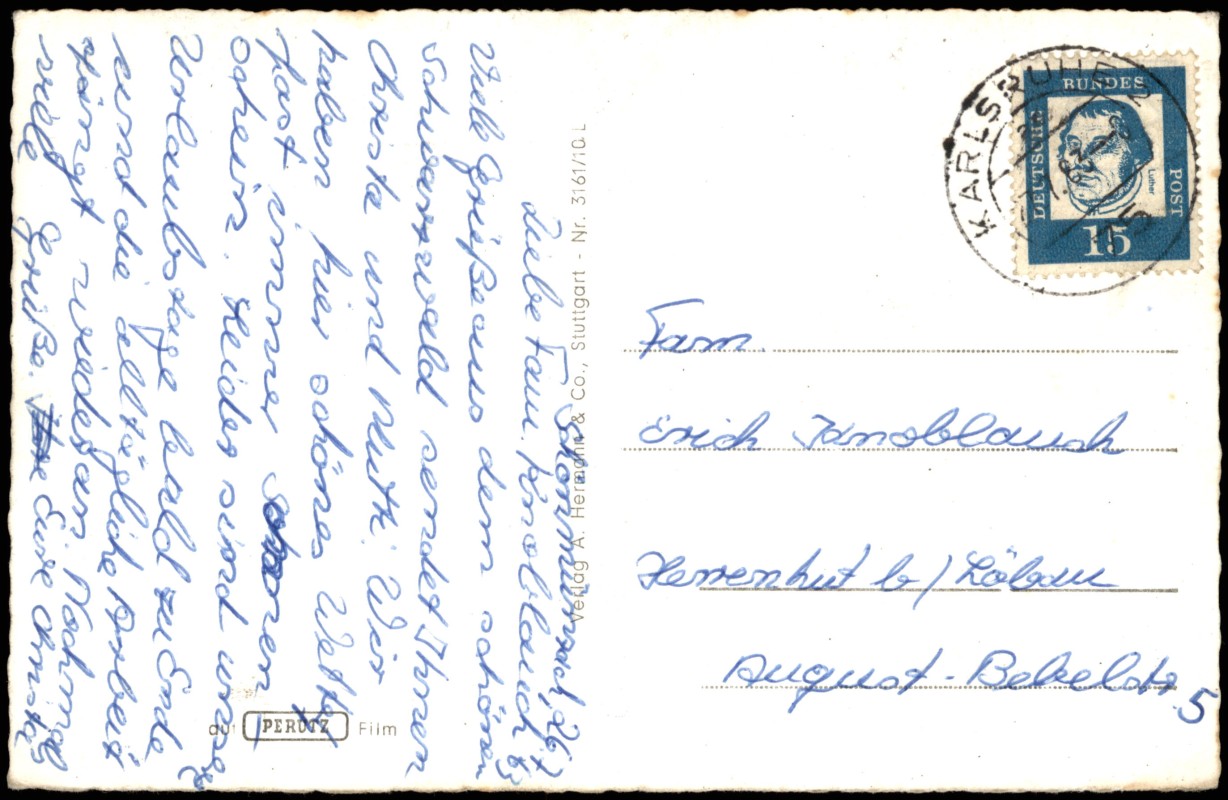 Schönmünzach, 26.7.63
Liebe Fam. Knoblauch
Viele Grüße aus dem schönen
Schwarzwald sendet Ihnen
Christa und Ruth. Wir
haben hier schönes Wetter
fast immer Sonnen
schein. Leider sind unsre
Urlaubstage bald zu Ende
und die alltägliche Arbeit
fängt wieder an. Nochmal
viele Grüße. Eure Christa
Verlag A. Hermann & Co., Stuttgart - Nr. 3161/10 L
auf PERUTZ Film
KARLSRUHE 2
DEUTSCHE BUNDES POST
Luther
15
Fam.
Erich Knoblauch
Herrenhut b/Löbau
August-Bebelstr. 5